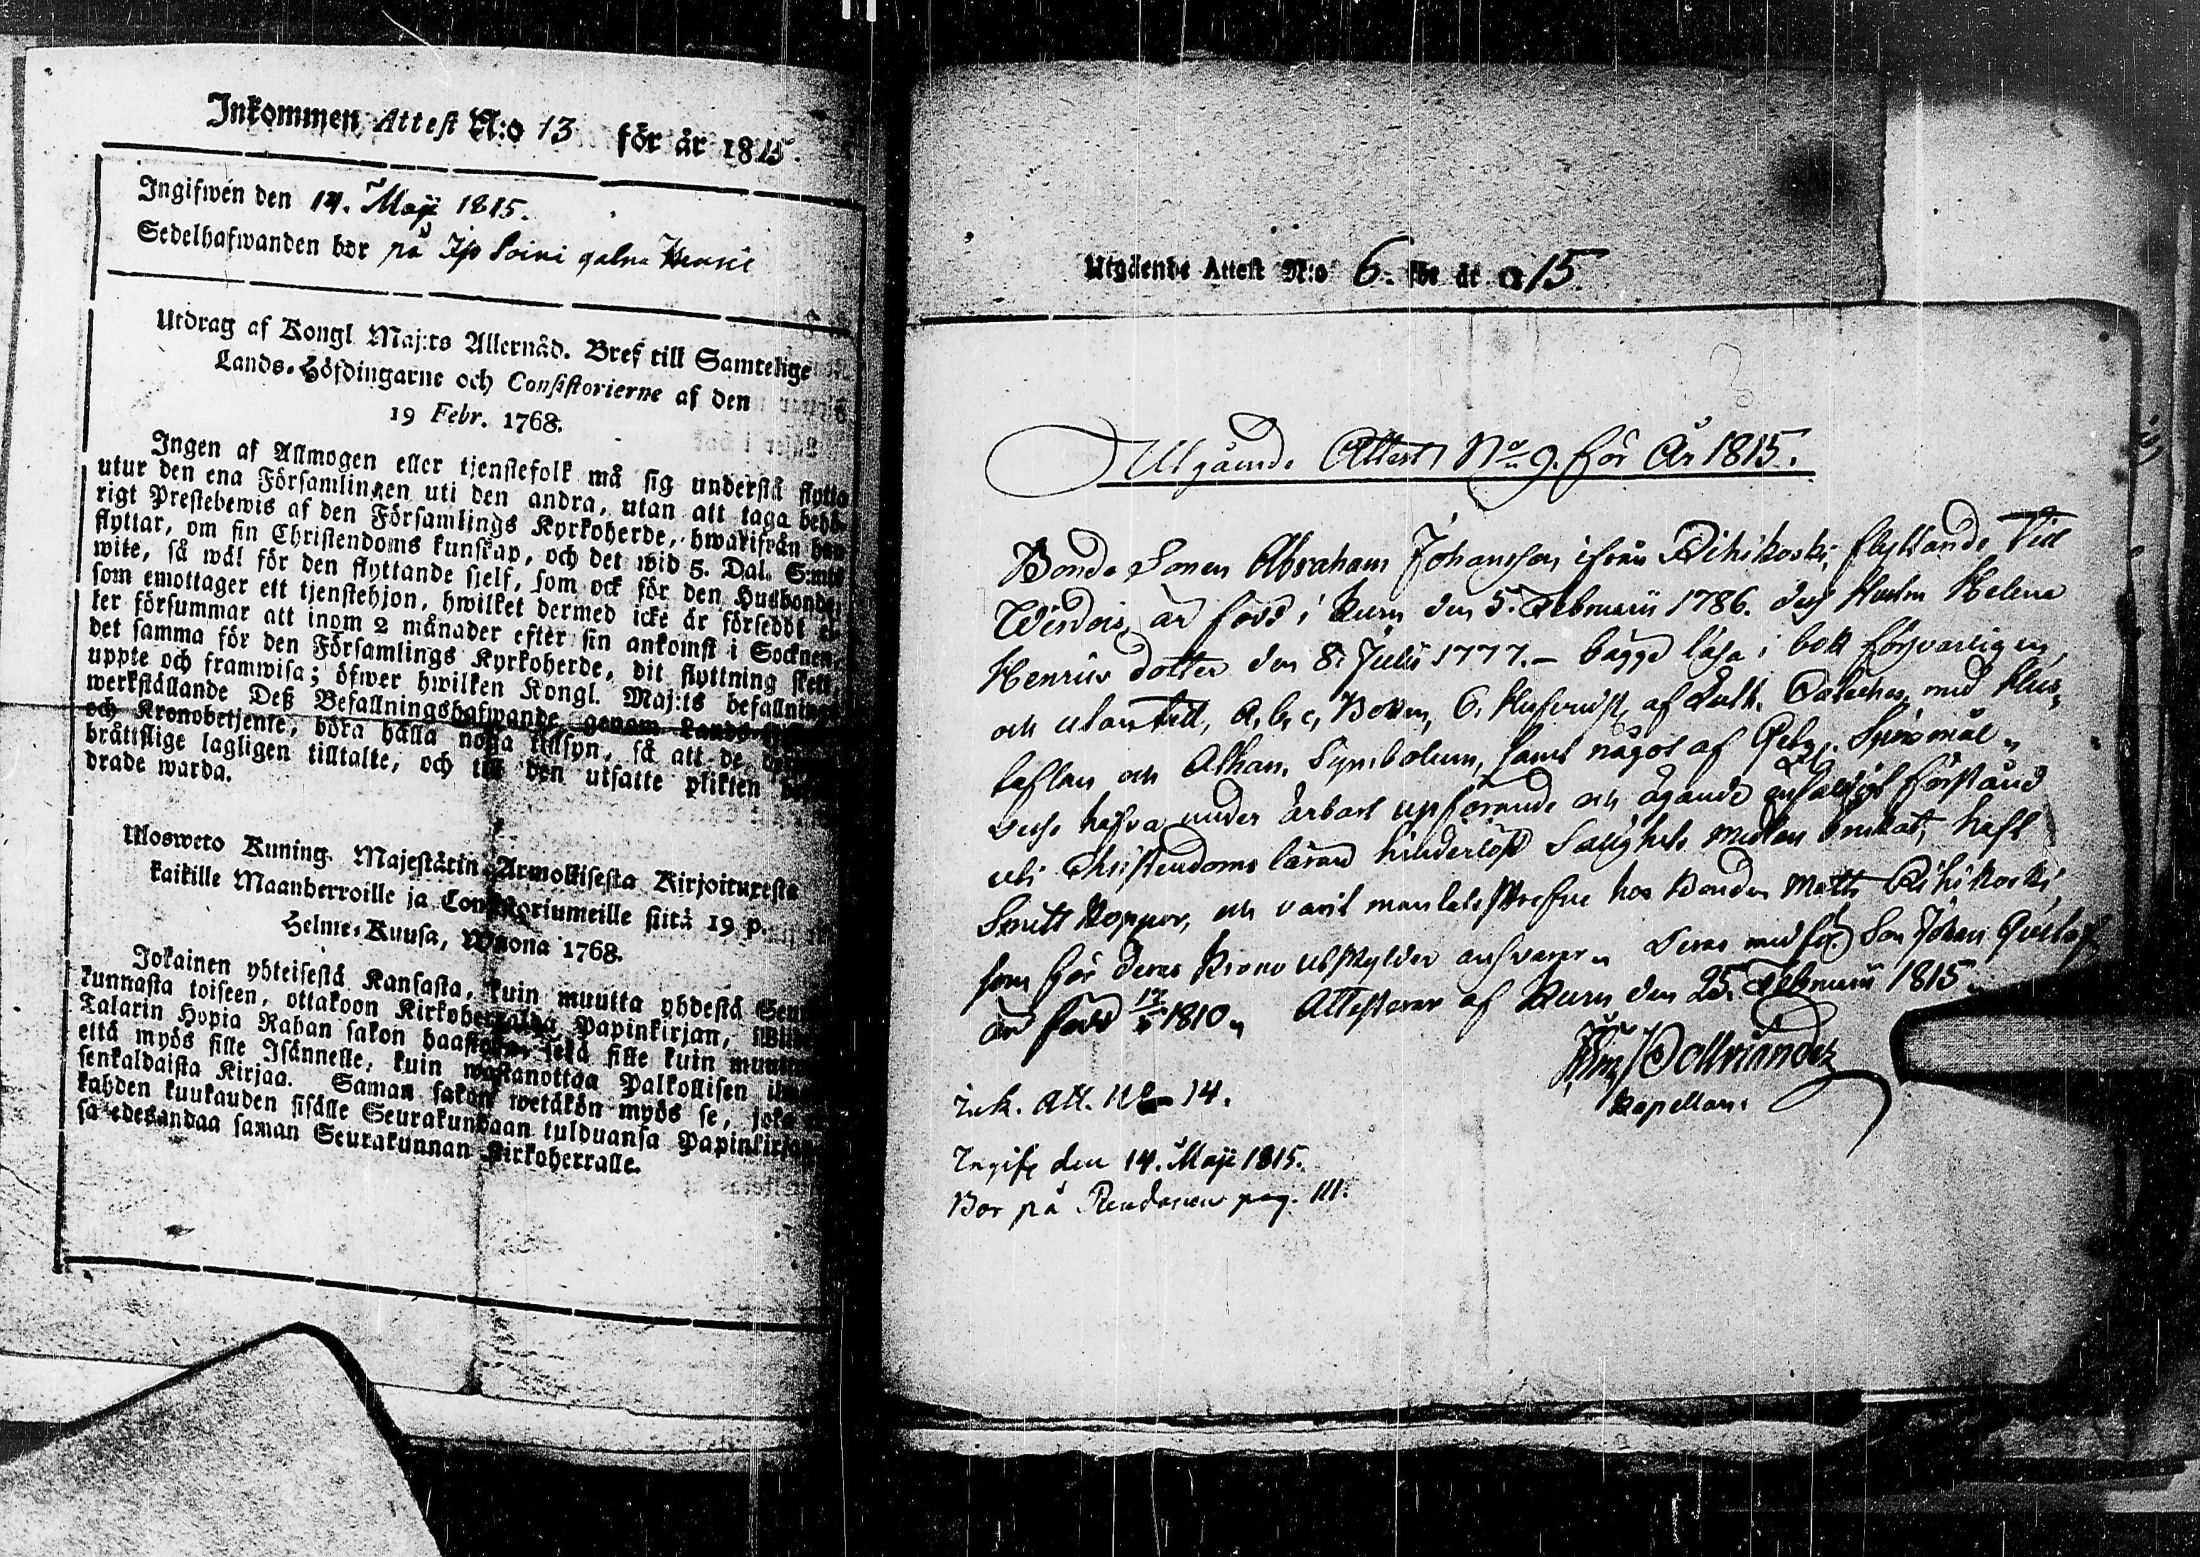 Inkommen Attest N:o 13 för år 1815.
Ingifwen den 14. Maji 1815.
Sedelhafwanden bor på Soini
Utdrag af Kongl. Maj:ts Allernåd. Bref till Samtelige
Lands-Höfdingarne och Consistorierne af den
19 Febr. 1768.
Ingen af Allmogen eller tjenstefolk må sig understå flytta
utur den ena Församlingen uti den andra, utan att taga behö-
rigt Prestebewis af den Församlings Kyrkoherde, hwarifrån han
flyttar, om sin Christendoms kunskap, och det wid 5. Dal. S:mt
wite, så wäl för den flyttande sjelf, som ock för den Husbonde,
som emottager ett tjenstehjon, hwilket dermed icke är försedt el-
ler försummar att inom 2 månader efter sin ankomst i Socknen,
det samma för den Församlings Kyrkoherde, dit flyttning sket,
uppte och framwisa; öfwer hwilken Kongl. Maj:ts befallning
werkställande Deß Befallningshafwande genom Lands-
och Kronobetjente, böra hålla noga tillsyn, så att de
bråttslige lagligen tilltalte, och till den utsatte plikten
drade warda.
Ulosweto Kuning. Majestätin Armollisesta Kirjoituxesta
kaikille Maanherroille ja Consistoriumeille siitä 19 p.
Helme-Kuusa, Wuona 1768.
Jokainen yhteisestä Kansasta, kuin muutta yhdestä Seura-
kunnasta toiseen, ottakoon Kirkoherralda Papinkirjan,
Talarin Hopia Rahan sakon haastolla, sekä sille kuin muutta
että myös sille Isännelle, kuin wastanottaa Palkollisen ilman
senkaldaista Kirjaa. Saman sakon wetäkön myös se, joka
kahden kuukauden sisälle Seurakundaan tulduansa Papinkirjan
sa edesandaa saman Seurakunnan Kirkoherralle.
Utgående Attest N:o 6. för år 1815.
Utgående Attest No 9. för År 1815.
Bonde Sonen Abraham Johansson ifrån Rihikoski, flyttande till
Wirdois, är född i Kuru den 5. Februarii 1786. dess Hustru Helena
Henrics dotter den 8. Julii 1777. – bägge läsa i bok försvarligen,
och utantill, A, b, c, Boken, Lutk. Cateches, med Hus-
taflan och Athan. Symbolum, samt något af Spörsmål.
desse hafva under ärbart upförande och ägande förstånd
uti Christendoms läran hinderlöst Salighets medlen brukat, haft
Smitt Koppor, och varit mantalsskrefne hos Bonden Matts Rihikoski,
som för deras Krono utskylder ansvarar. Deras medför. Son Johan Gustaf
är född 17/5 1810. Attesterar af Kuru den 25. Februarii 1815.
Kapellan.
Ink. Att. No 14.
Ingif. den 14. Maji 1815.
Bor på pag. 111.